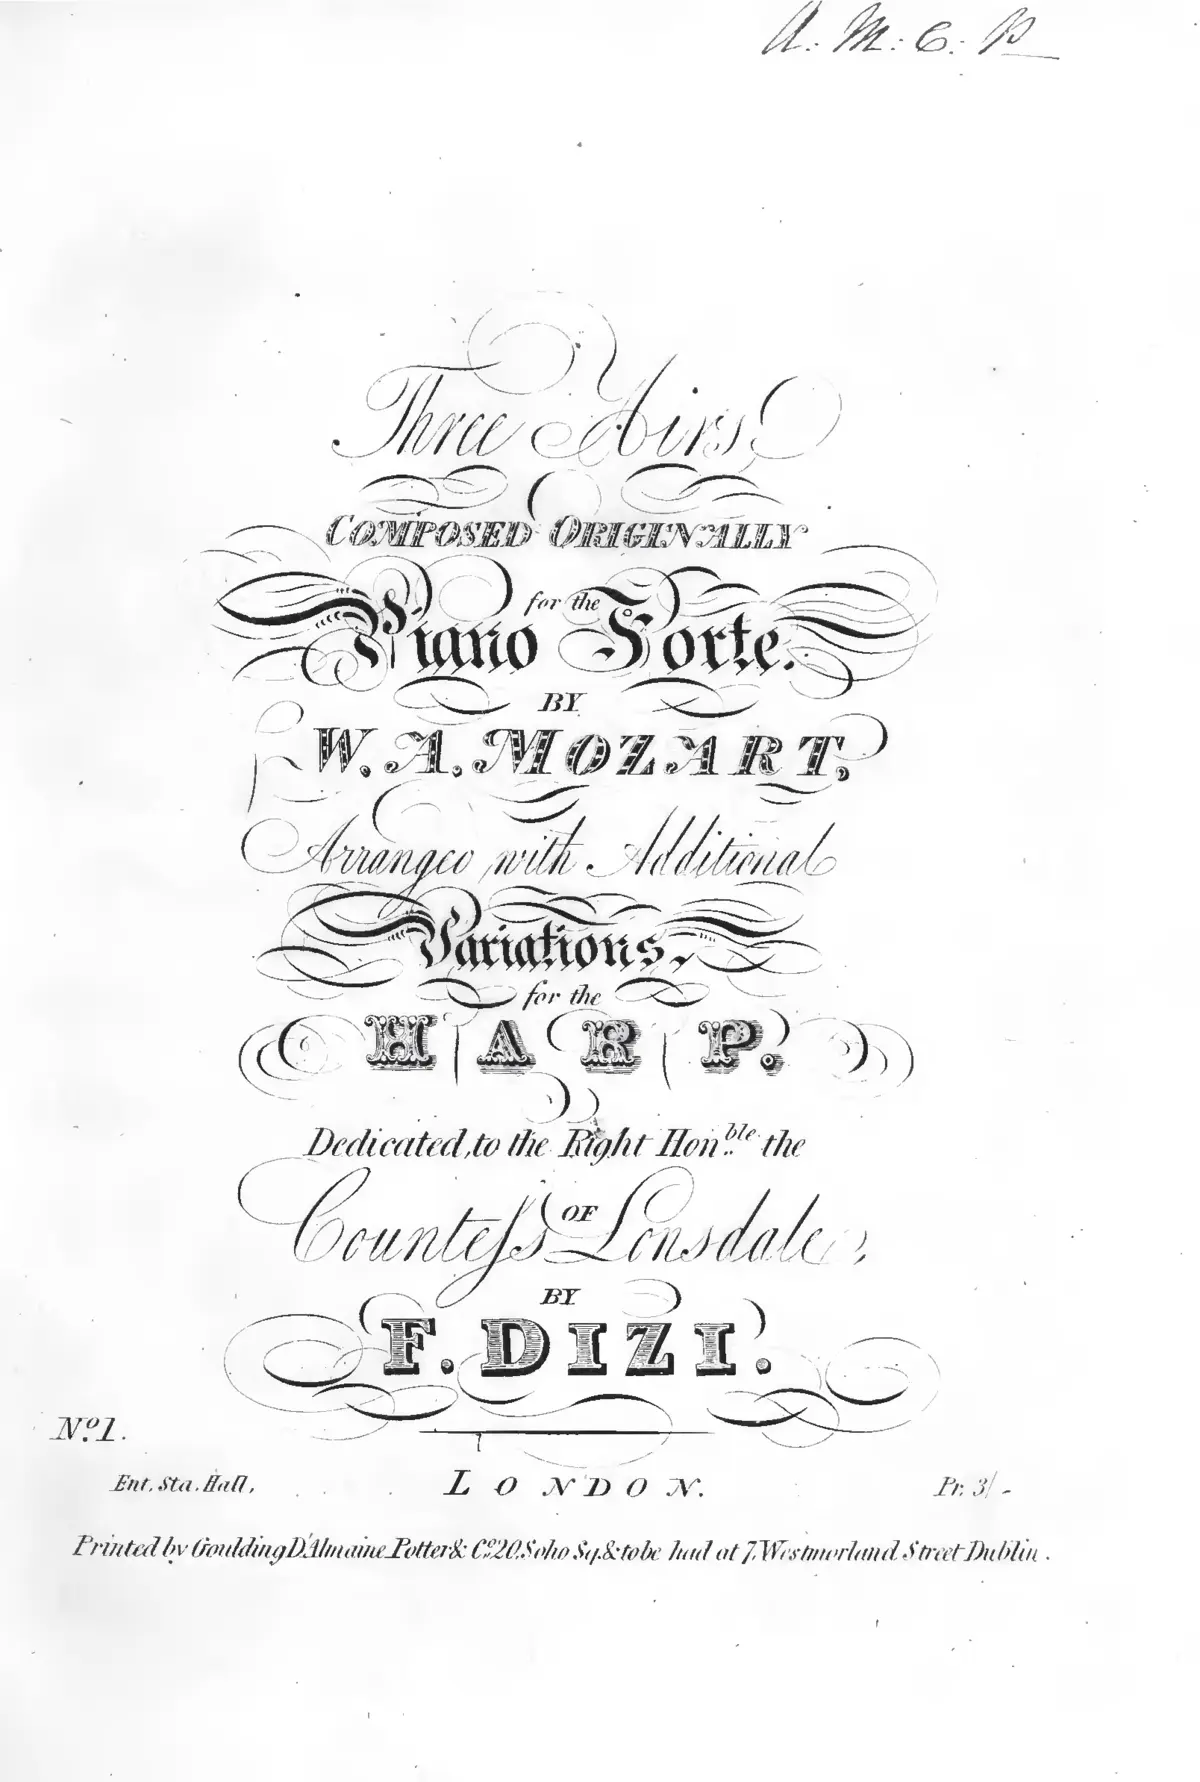 A. M. C. P
Three Airs,
COMPOSED ORIGINALLY
for the
Piano Forte.
BY
W. A. MOZART,
Arranged, with Additional
Variations,
for the
HARP.
Dedicated, to the Right Hon.ble the
Countess OF Lonsdale,
BY
F. DIZI.
No. 1.
Ent. Sta. Hall. LONDON. Pr. 3/-
Printed by Goulding D'Almaine Potter & Co. 20, Soho Sq. & to be had at 7, Westmorland Street Dublin.